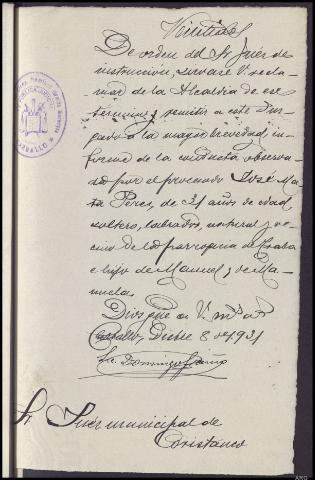 De orden del Sr Juez de
instrucción, servase V. recla-
mar de la Alcaldia de ese
termino y remitir a este Juz-
gado a la mayor brevedad, in-
forme de la conducta observa-
da por el procesado José Ma
Perez, de 21 años de edad
soltero, labrador, natural y ve-
cino de la parroquia de
e hijo de Manuel y de Ma-
nuela.
Dios gue a V. ms as
Carballo, Dicbre 8 de 1931
Lic. Domingo
Sr. Juez municipal de
Coristanco
CARBALLO